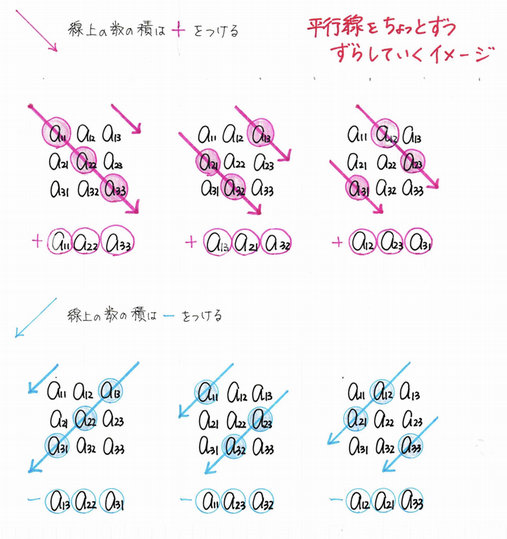 線上の数の積は + をつける
平行線をちょっとずつ
ずらしていくイメージ
a₁₁ a₁₂ a₁₃
a₂₁ a₂₂ a₂₃
a₃₁ a₃₂ a₃₃
+ a₁₁ a₂₂ a₃₃
a₁₁ a₁₂ a₁₃
a₂₁ a₂₂ a₂₃
a₃₁ a₃₂ a₃₃
+ a₁₃ a₂₁ a₃₂
a₁₁ a₁₂ a₁₃
a₂₁ a₂₂ a₂₃
a₃₁ a₃₂ a₃₃
+ a₁₂ a₂₃ a₃₁
線上の数の積は − をつける
a₁₁ a₁₂ a₁₃
a₂₁ a₂₂ a₂₃
a₃₁ a₃₂ a₃₃
− a₁₃ a₂₂ a₃₁
a₁₁ a₁₂ a₁₃
a₂₁ a₂₂ a₂₃
a₃₁ a₃₂ a₃₃
− a₁₁ a₂₃ a₃₂
a₁₁ a₁₂ a₁₃
a₂₁ a₂₂ a₂₃
a₃₁ a₃₂ a₃₃
− a₁₂ a₂₁ a₃₃